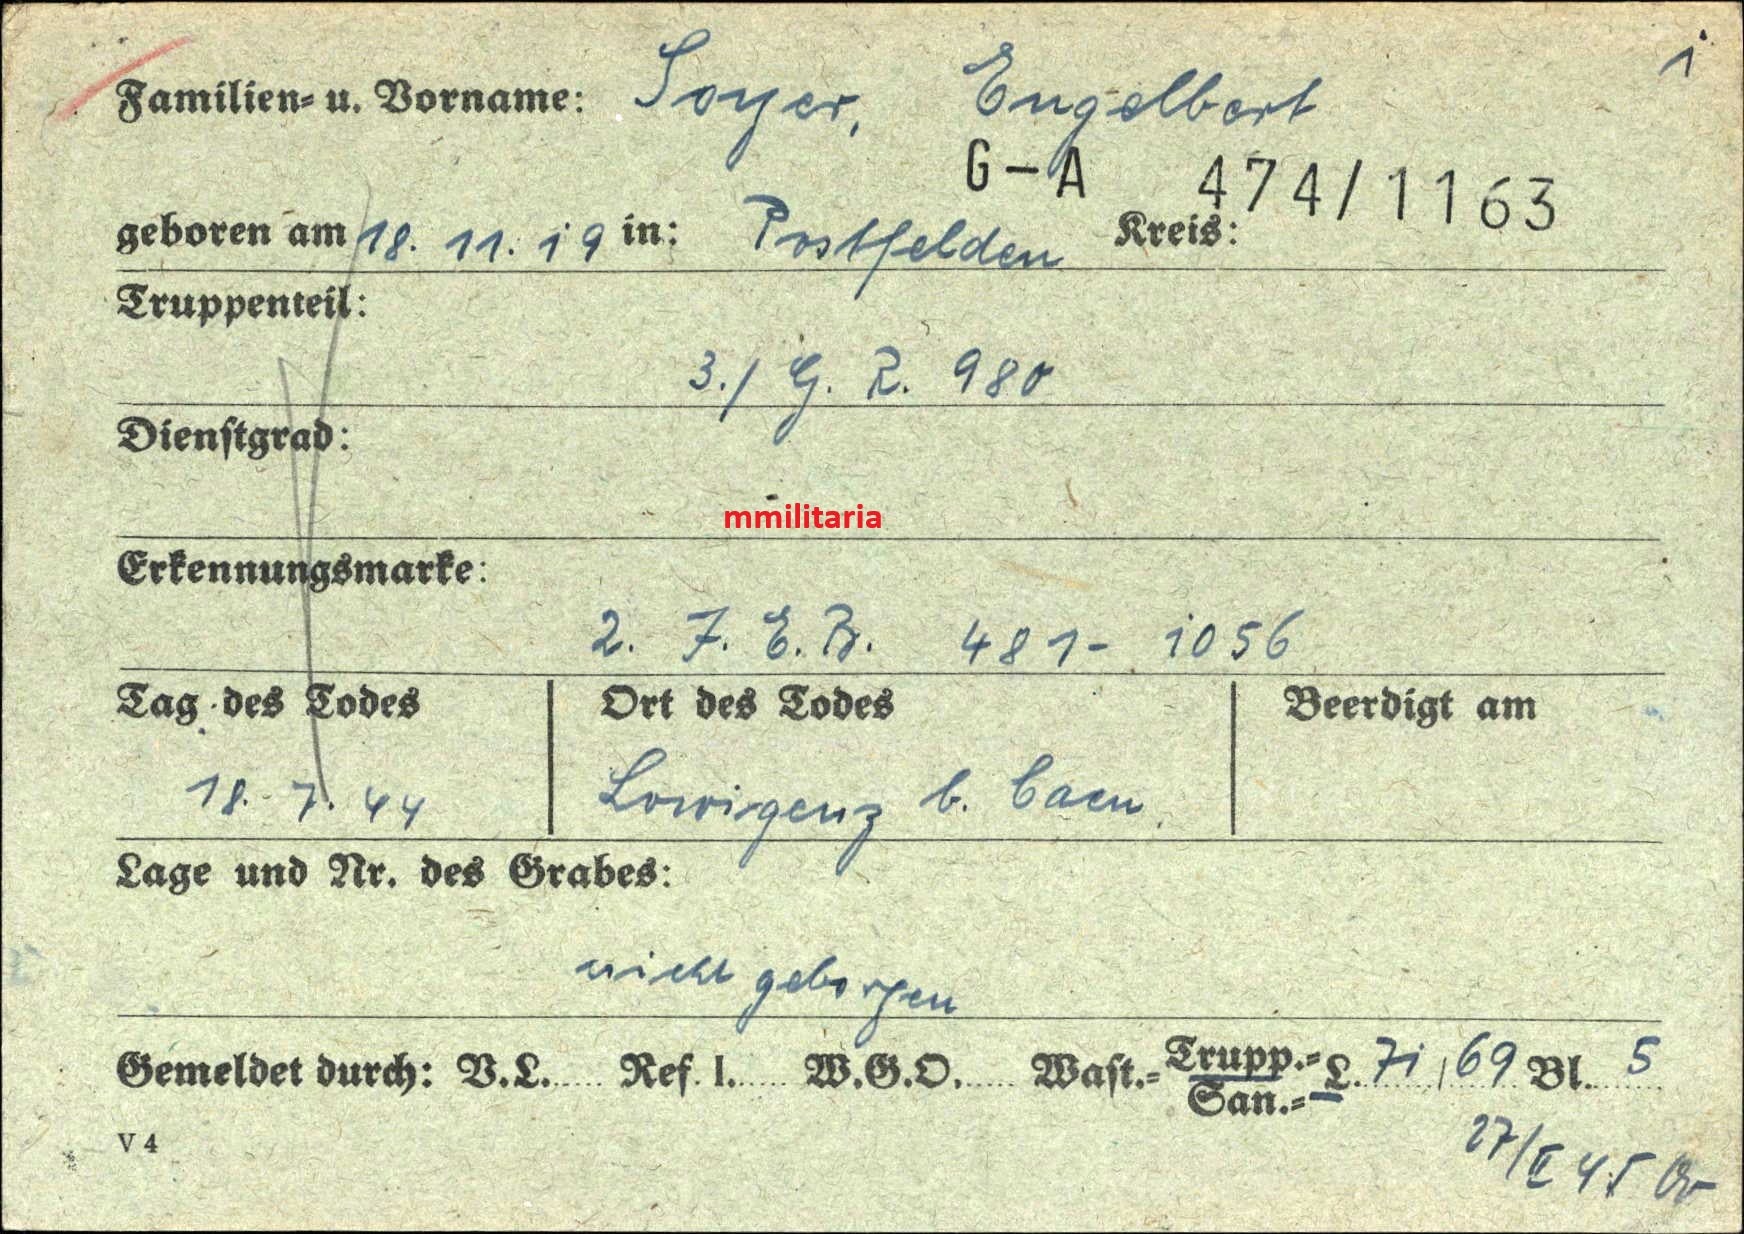 i
Familien= u. Vorname: Soyer, Engelbert
G-A 474/1163
geboren am 18. 11. 19 in: Postfelden Kreis:
Truppenteil:
3./ G. R. 980
Dienstgrad:
mmilitaria
Erkennungsmarke:
2. J. E. B. 481- 1056
Tag des Todes Ort des Todes Beerdigt am
18. 7. 44 Lowigenz b. Caen
Lage und Nr. des Grabes:
nicht geborgen
Gemeldet durch: V.L. Ref. I. W.G.O. Wast.= Trupp.= San.= L. 71 / 69 Bl. 5
V 4
27/II 45